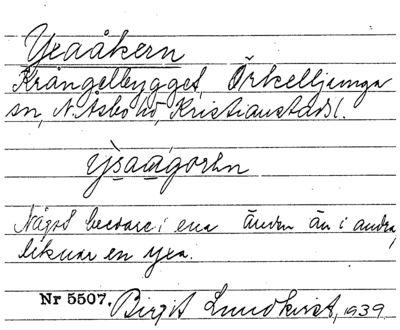 Yxaåkern
Krångelbygget, Örkelljunga
sn, N. Åsbo hd, Kristianstads l.
Något bredare i ena änden än i andra,
liknar en yxa.
Nr 5507. Birgit Lundkvist, 1939.